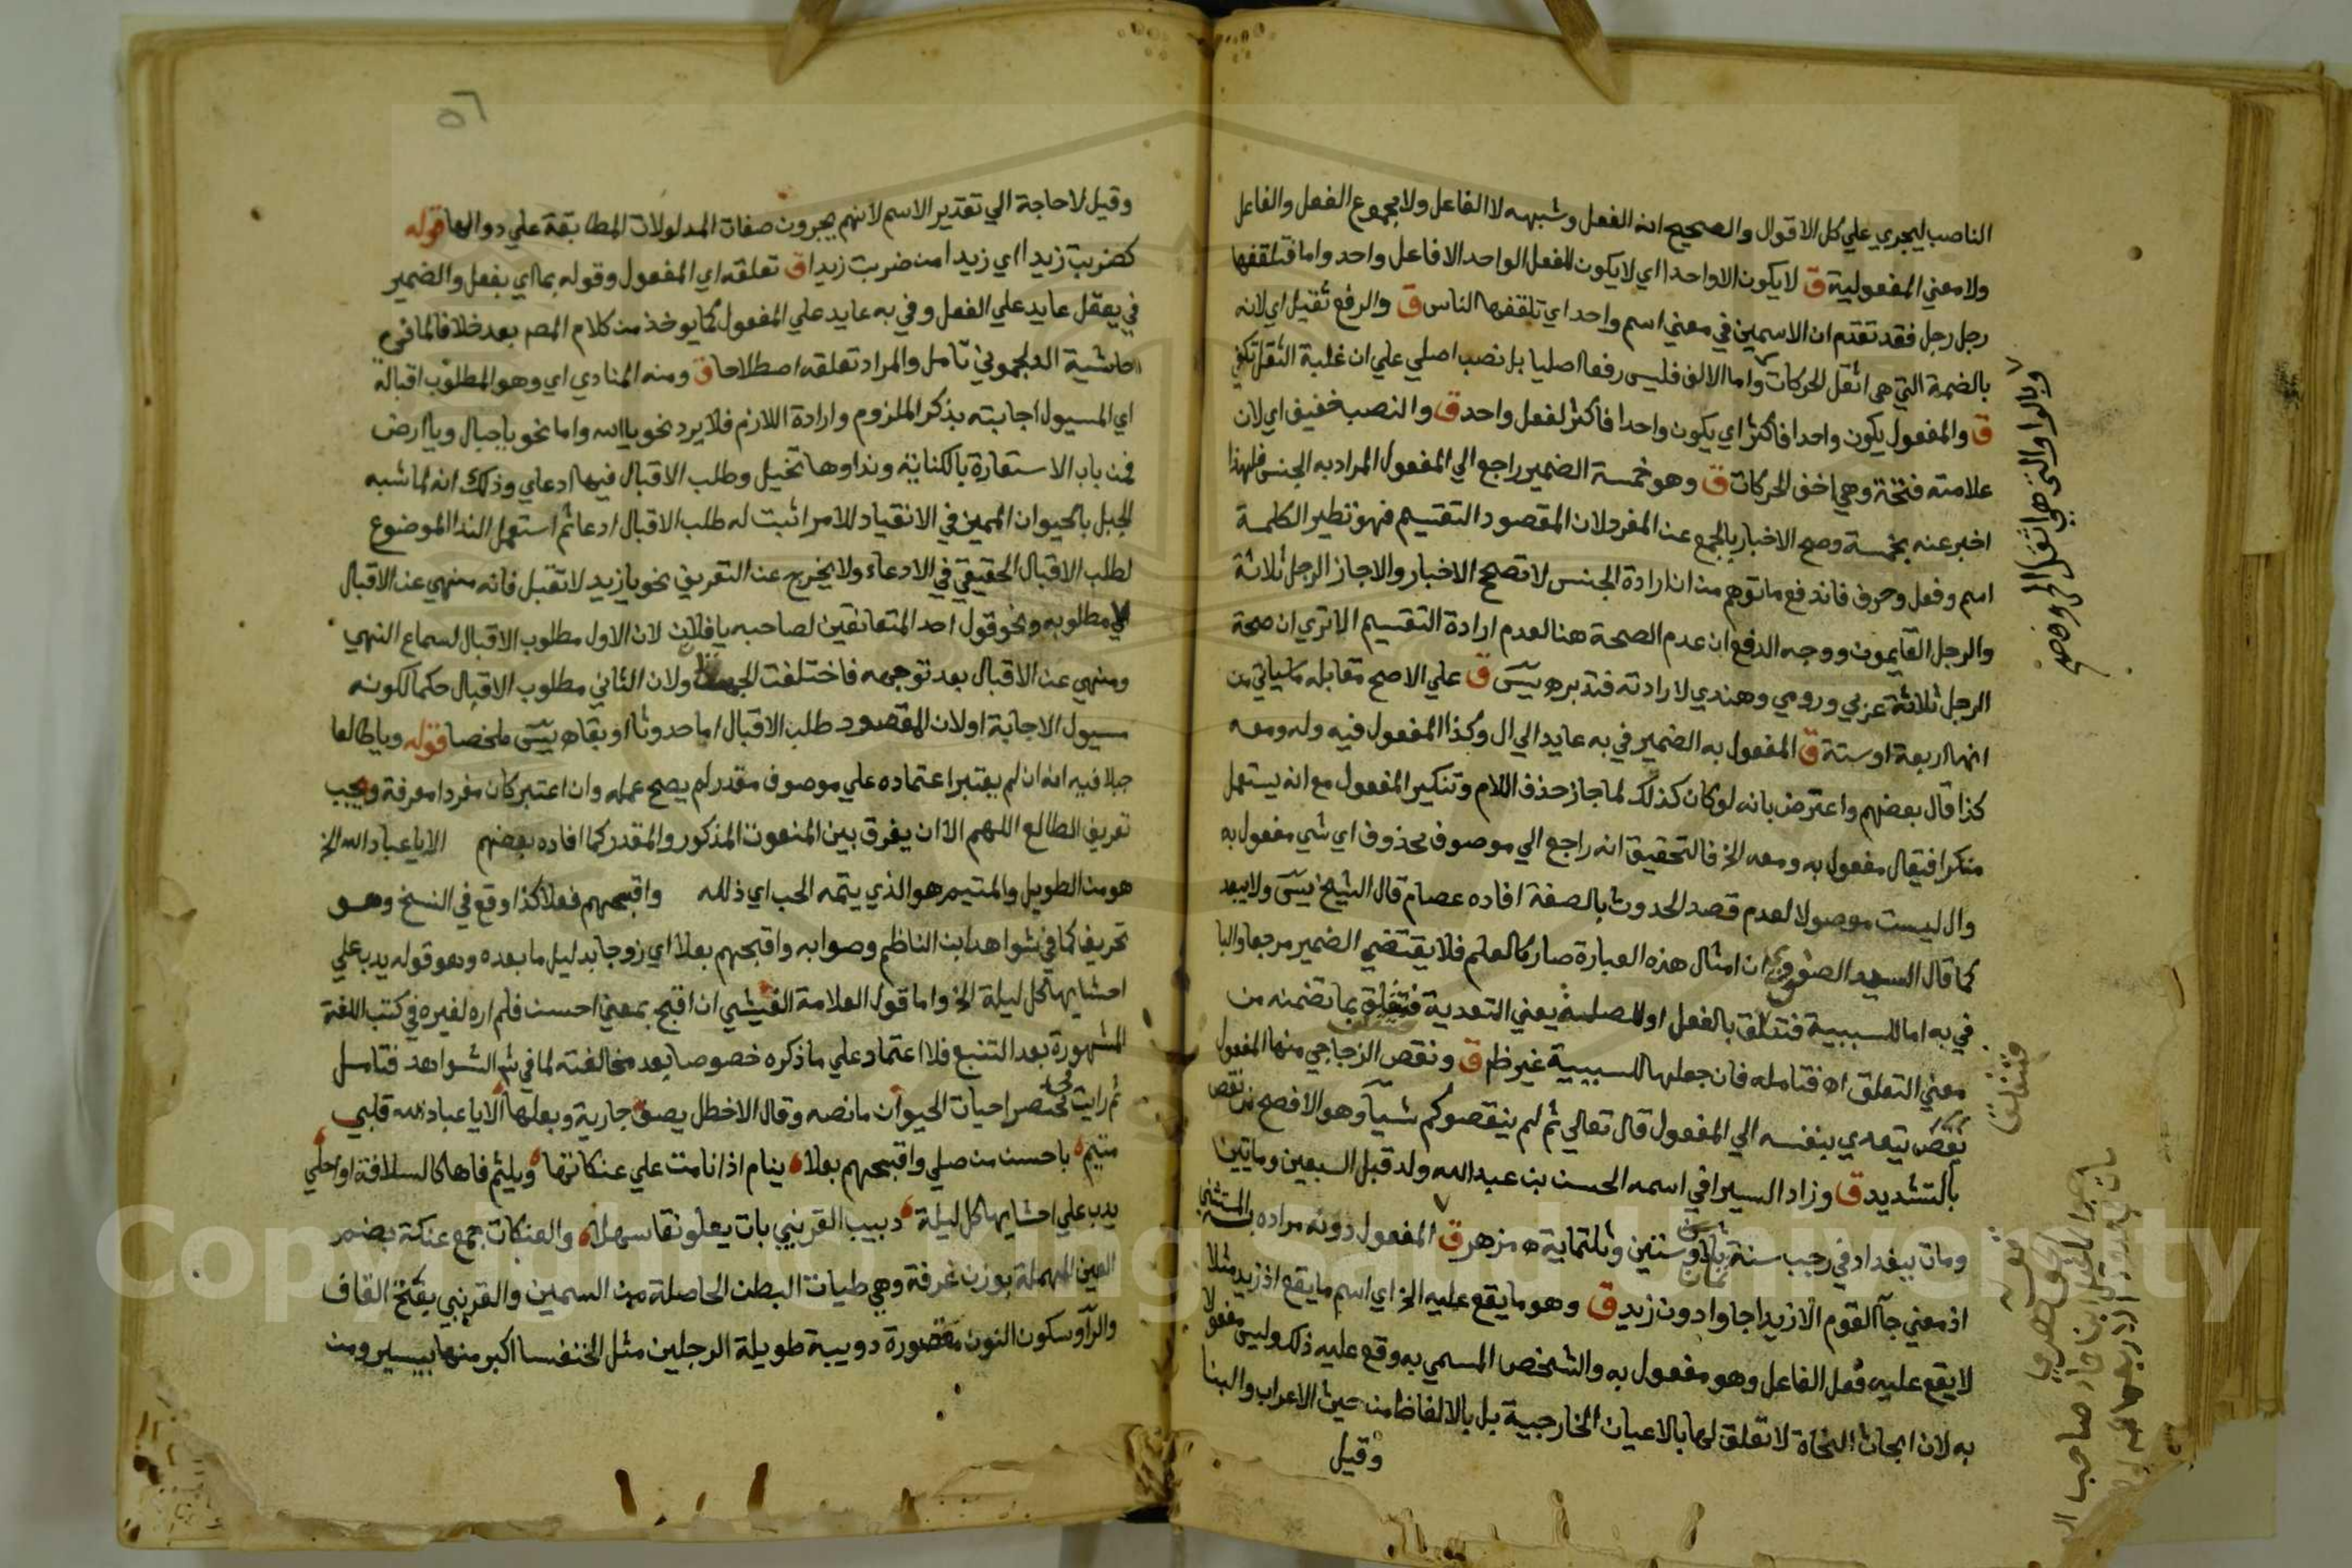 الناصب ليجري علي كل الاقوال والصحيح انه الفعل وشبهه لا الفاعل ولا مجموع الفعل والفاعل
ولا معني المفعولية ق لا يكون الا واحدا اي لا يكون للفعل الواحد الا فاعل واحد واما فتلقفها
رجل رجل فقد تقدم ان الاسمين في معني اسم واحد اي تلقفها الناس ق والرفع ثقيل اي لانه
بالضمة التي هي اثقل الحركات واما الالف فليس رفعا اصليا بل نصب اصلي علي ان غلبة الثقل تكفي
ق والمفعول يكون واحدا فاكثر اي يكون واحدا فاكثر لفعل واحد ق والنصب خفيف اي لان
علامته فتحة وهي اخف الحركات ق وهو خمسة الضمير راجع الي المفعول المراد به الجنس فلهذا
اخبر عنه بخمسة وصح الاخبار بالجمع عن المفرد لان المقصود التقسيم فهو نظير الكلمة
اسم وفعل وحرف فاندفع ما توهم من ان ارادة الجنس لا تصحح الاخبار والا جاز الرجل ثلاثة
والرجل القايمون ووجه الدفع ان عدم الصحة هنا لعدم ارادة التقسيم الا تري ان صحة
الرجل ثلاثة عربي ورومي وهندي لارادته فتدبره يسَ ق علي الاصح مقابله ما سياتي من
انها اربعة او ستة ق المفعول به الضمير في به عايد الي ال وكذا المفعول فيه وله ومعه
كذا قال بعضهم واعترض بانه لو كان كذلك لما جاز حذف اللام وتنكير المفعول مع انه يستعمل
منكرا فيقال مفعول به ومعه الخ فالتحقيق انه راجع الي موصوف محذوف اي شي مفعول به
وال ليست موصولا لعدم قصد الحدوث بالصفة افاده عصام قال الشيخ يسَ ولا يبعد
كما قال السيد الصفوي ان امثال هذه العبارة صار كالعلم فلا يقتضي الضمير مرجعا والبا
في به اما للسببية فتتعلق بالفعل او للصلة يعني التعدية فتتعلق بما تضمنه من
معني التعلق اه فتامله فان جعلها للسببية غير ظ ق ونقص الزجاجي منها المفعول
نقص يتعدي بنفسه الي المفعول قال تعالي ثم لم ينقصوكم شيا وهو الافصح من نقص
بالتشديد ق وزاد السيرافي اسمه الحسن بن عبد الله ولد قبل السبعين ومايتين
ومات ببغداد في رجب سنة ثمان وستين وثلثماية ه مزهر ق المفعول دونه مراده به المستثني
اذ معني جا القوم الا زيدا جاوا دون زيد ق وهو ما يقع عليه الخ اي اسم ما يقع اذ زيد مثلا
لا يقع عليه فعل الفاعل وهو مفعول به والشخص المسمي به وقع عليه ذلك وليس مفعولا
به لان ابحاث النحاة لا تعلق لها بالاعيان الخارجية بل بالالفاظ من حيث الاعراب والبنا
وقيل
وبالواو التي هي اثقل
فتتعلق
قوله
صاحب
٥٦
وقيل لا حاجة الي تقدير الاسم لانهم يجرون صفات المدلولات المطابقة علي دوالها قوله
كضربت زيدا اي زيدا من ضربت زيدا ق تعلقه اي المفعول وقوله بما اي بفعل والضمير
في يعقل عايد علي الفعل وفي به عايد علي المفعول كما يوخذ من كلام المصر بعد خلافا لما في
حاشية الدلجموني تامل والمراد تعلقه اصطلاحا ق ومنه المنادي اي وهو المطلوب اقباله
اي المسيول اجابته بذكر الملزوم وارادة اللازم فلا يرد نحو يا الله واما نحو يا جبال ويا ارض
فمن باب الاستعارة بالكناية ونداوها تخييل وطلب الاقبال فيها ادعاي وذلك انه لما شبه
الجبل بالحيوان المميز في الانقياد للامر اثبت له طلب الاقبال ادعا ثم استعمل الندا الموضوع
لطلب الاقبال الحقيقي في الادعاء ولا يخرج عن التعريف نحو يا زيد لا تقبل فانه منهي عن الاقبال
لا مطلوبه ونحو قول احد المتعانقين لصاحبه يا فلان لان الاول مطلوب الاقبال لسماع النهي
ومنهي عن الاقبال بعد توجهه فاختلفت الجهتان ولان الثاني مطلوب الاقبال حكما لكونه
مسيول الاجابة او لان المقصود طلب الاقبال اما حدوثا او بقاه يسَ ملخصا قوله ويا طالعا
جبلا فيه انه ان لم يعتبر اعتماده علي موصوف مقدر لم يصح عمله وان اعتبر كان مفردا معرفة ويجب
تعريف الطالع اللهم الا ان يفرق بين المنعوت المذكور والمقدر كما افاده بعضهم الا يا عباد الله الخ
هو من الطويل والمتيم هو الذي يتمه الحب اي ذلله واقبحهم فعلا كذا وقع في النسخ وهو
تحريف كما في شواهد ابن الناظم وصوابه واقبحهم بعلا اي زوجا بدليل ما بعده وهو قوله يدب علي
احشايها كل ليلة الخ واما قول العلامة الفيشي ان اقبح بمعني احسن فلم اره لغيره في كتب اللغة
المشهورة بعد التتبع فلا اعتماد علي ما ذكره خصوصا بعد مخالفته لما في ثم الشواهد فتامل
ثم رايت في مختصر احيات الحيوان ما نصه وقال الاخطل يصف جارية وبعلها الا يا عباد الله قلبي
متيم باحسن من صلي واقبحهم بعلا ينام اذا نامت علي عنكاتها ويلثم فاها كالسلافة او احلي
يدب علي احشايها كل ليلة دبيب القرنبي بات يعلو نقا سهلا والعنكات جمع عنكة بضم
العين المهملة بوزن غرفة وهي طيات البطن الحاصلة من السمين والقرنبي بفتح القاف
والرا وسكون النون مقصورة دويبة طويلة الرجلين مثل الخنفسا اكبر منها بيسير ومن